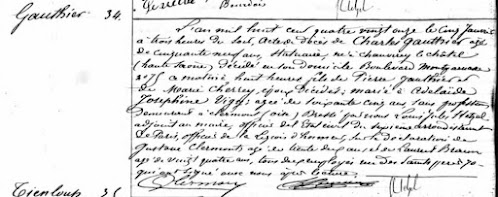 Gauthier 34.
L'an mil huit cent quatre vingt onze le cinq Janvier
à trois heures du soir, Acte de décès de Charles Gauthier âgé
de cinquante neuf ans, Statuaire né à Chauvirey le châtel
(haute Saone), décédé en son domicile Boulevard Montparnasse
n° 75 ce matin à huit heures, fils de Pierre Gauthier et
de Marie Cherrey, époux décédés; marié à Adélaïde
Joséphine Vigy; agée de soixante cinq ans sans profession
Demeurant à Clermont (oise) Dressé par nous Louis Jules Hetzel
adjoint au maire, officier de l'Etat civil du Sixième arrondissement
de Paris, officier de la Légion d'honneur, sur la déclaration de
Gustave Clermont, agé de trente deux ans et de Laurent
agé de vingt quatre ans, tous deux employés rue des Saints pères
qui ont signé avec nous après lecture.
Clermont Hetzel
35